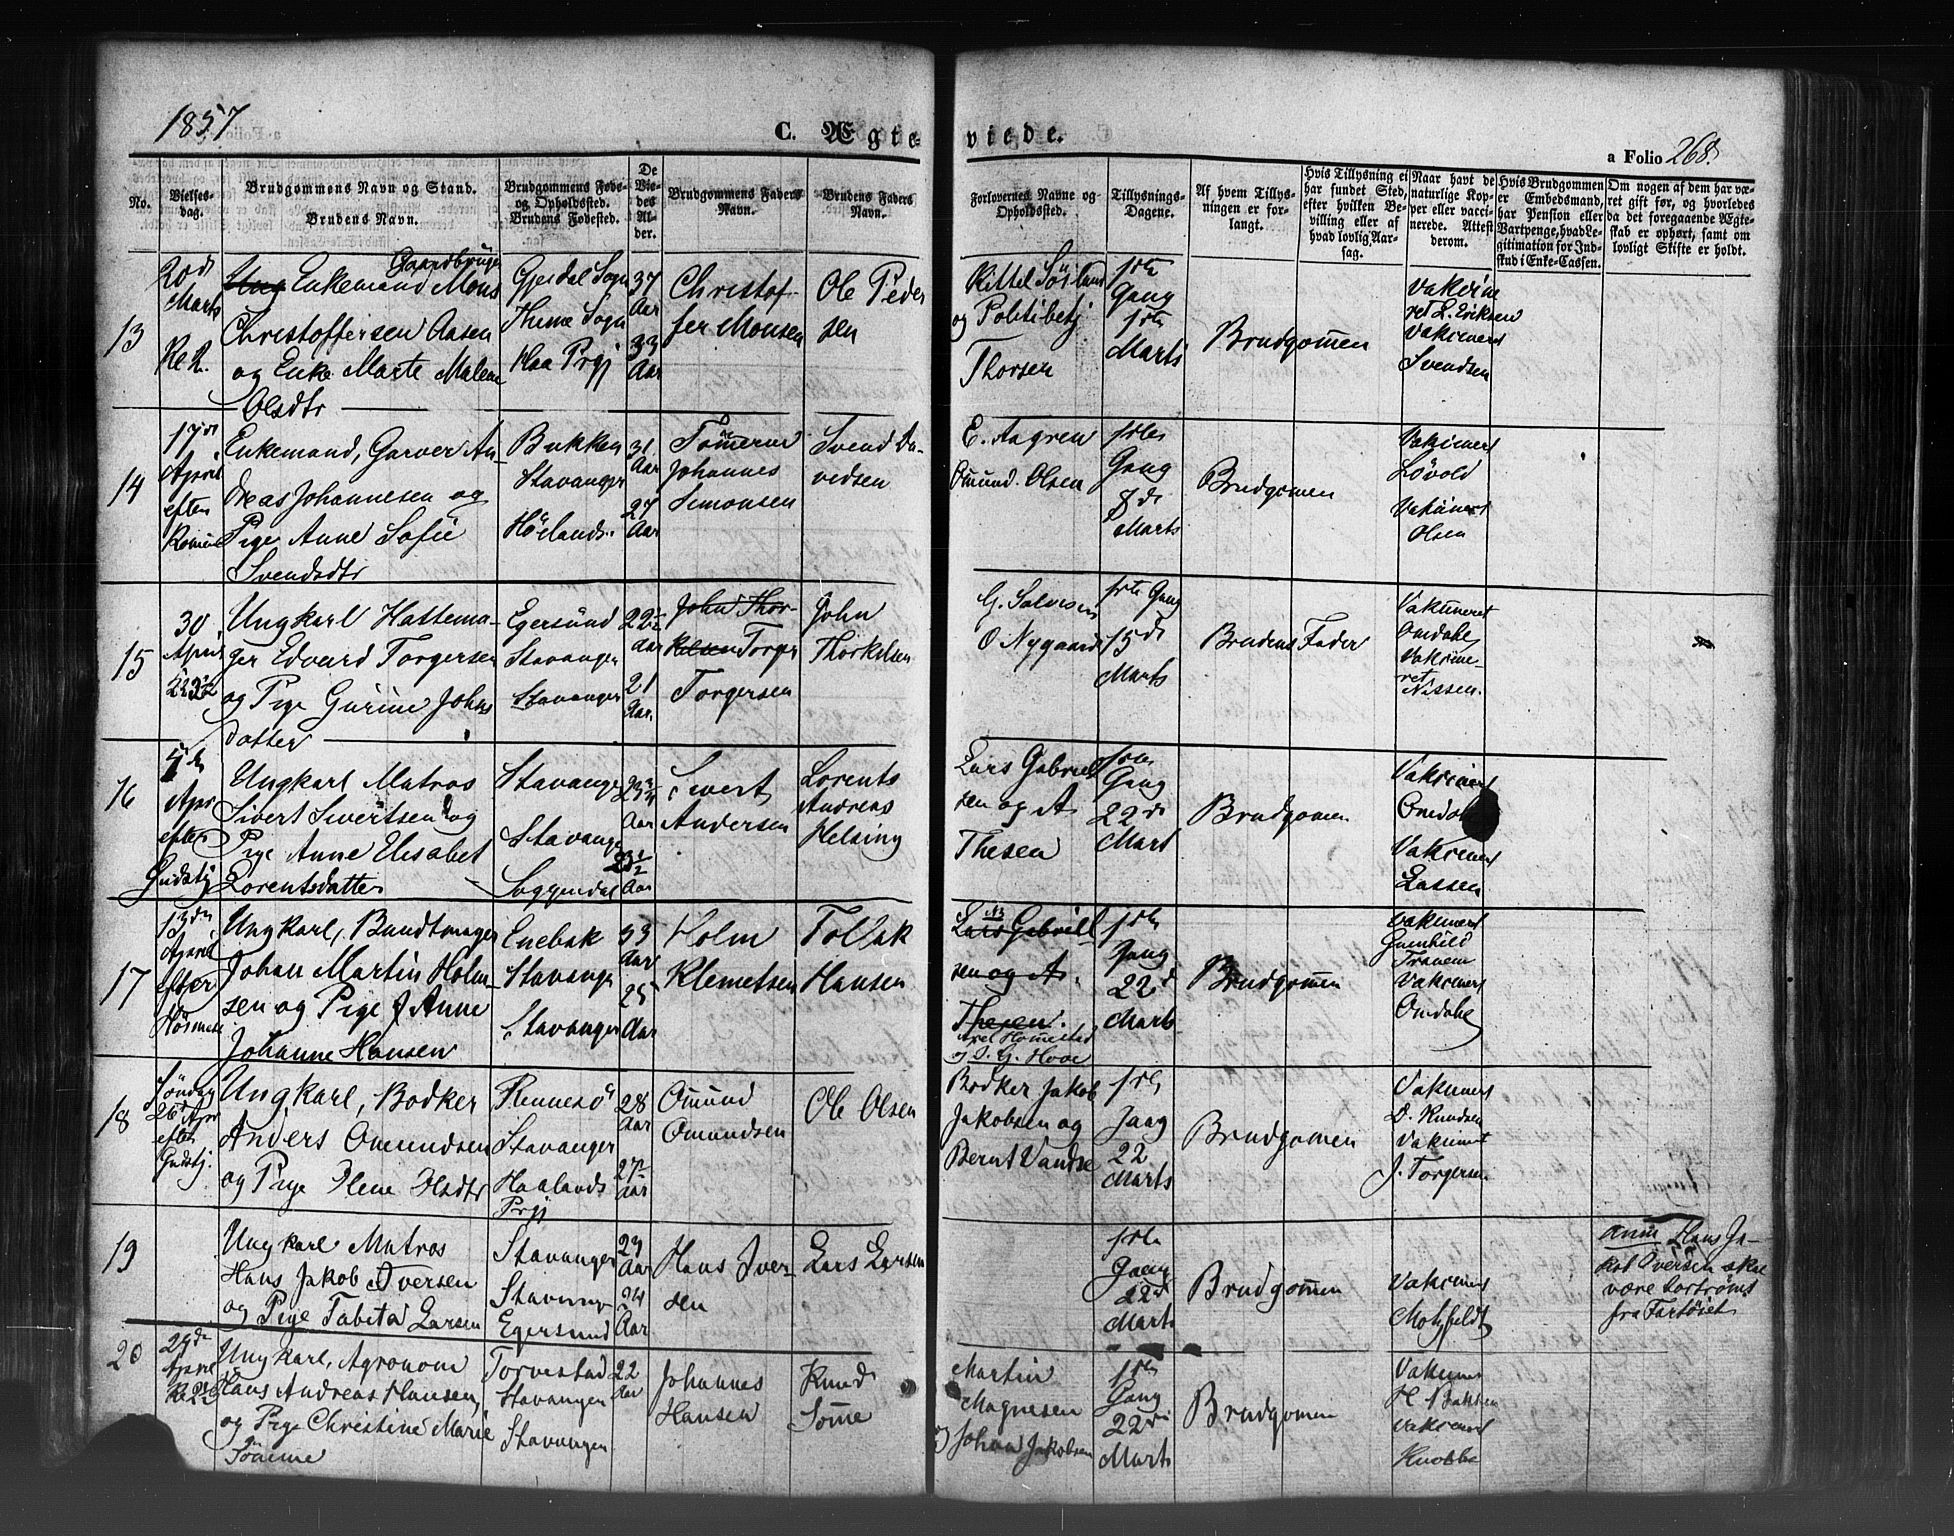 1857
C. Ægte-
viede.
a Folio 268.
No.
Vielses-
dag.
Brudgommens Navn og Stand.
Brudens Navn.
Brudgommens Føde-
og Opholdssted.
Brudens Fødested.
De
Vie-
des
Al-
der.
Brudgommens Faders
Navn.
Brudens Faders
Navn.
Forlovernes Navne og
Opholdssted.
Tillysnings-
Dagene.
Af hvem Tillys-
ningen er for-
langt.
Hvis Tillysning ei
har fundet Sted,
efter hvilken Be-
villing eller af
hvad lovlig Aar-
sag.
Naar havt de
naturlige Kop-
per eller vacci-
nerede. Attest
derom.
Hvis Brudgommen
er Embedsmand,
har Pension eller
Vartpenge, hvad Le-
gitimation for Ind-
skud i Enke-Cassen.
Om nogen af dem har væ-
ret gift før, og hvorledes
da det foregaaende Ægte-
skab er ophørt, samt om
lovligt Skifte er holdt.
13
20de
Marts
Gaardbruger
Ung Enkemand Mons
Christoffersen Aasen
og Enke Marte Malene
Olsdtr
Gjesdal Sogn
Thime Sogn
Haa Prgj
37
Aar
33
Aar
Christof-
fer Monsen
Ole Peder
sen
Kittel Sösland
og Politibetj
Thorsen
1ste
Gang
1ste
Marts
Brudgommen
Vakcine
ret L. Eriksen
Vakcineret
Svendsen
14
17de
April
efter
Enkemand, Garver An-
dreas Johannesen og
Pige Anne Sofie
Svendsdtr
Bukken
Stavanger
Höelands
31
Aar
27
Aar
Tömmermd
Johannes
Simonsen
Svend Da-
vedsen
E. Aagren
Omund Olsen
1ste
Gang
8de
Marts
Brudgomen
Vakcineret
Lövold
Vakcineret
Olsen
15
30
April
Ungkarl Hattema-
ger Edvard Torgersen
og Pige Gurine Johns
datter
Egersund
Stavanger
Stavanger
22½
aar
21
Aar.
John Thor-
kelsen Torger
Torgersen
John
Thorkelsen
G. Salvesen
O Nygaard
1ste Gang
15de
Marts
Brudens Fader
Vakcineret
Omdahl
Vakcine-
ret
Nissen.
16
April
efter
Gudstj
Ungkarl Matros
Sivert Sivertsen og
Pige Anne Elisabet
Lorentsdatter
Stavanger
Stavanger
Soggendal
23¾
Aar
23½
Aar
Sivert
Andersen
Lorents
Andreas
Helsing
Lars Gabriel
sen og A
Thesen
1ste
Gang
22de
Mart
Brudgomen
Vakcineret
Omdahl
Vakcineret
Lassen
17
13de
April
efter
Ungkarl, Bundtmager
Johan Martin Holm-
sen og Pige J Anne
Johanne Hansen
Enebak
Stavanger
Stavanger
33
Aar
25
Aar
Holm
Klemetsen
Tollak
Hansen
Lars Gabriel
sen og A.
Thesen.
Axel Hommestad
og S. G. Hooe
1ste
Gang
22d
Marts
Brudgommen
Vakcineret
Gunhild
Tranem
Vakcineret
Omdahl
18
Söndag
26de Apr
efter
Gudstj.
Ungkarl, Bödker
Anders Omundsen
og Pige Elene Olsdtr
Rennesö
Stavanger
Haalands
Prgj
28
Aar
27
aar
Omund
Omundsen
Ole Olsen
Bödker Jakob
Jakobsen og
Bernt Vandse
1ste
Gang
22
Marts
Brudgomen
Vakcineret
D. Knudsen
Vakcineret
J. Torgersen
19
Ungkarl Matros
Hans Jakob Iversen
og Pige Tabita Larsen
Stavanger
Stavanger
Egersund
29
Aar
24
Aar
Hans Iver-
sen
Lars Larsen
1ste
Gang
22de
Marts
Brudgommen
Vakcineret
Motzfeldt
anm Hans Ja-
kob Iversen skal
være bortrömt
fra Fartöiet
20
April
Ungkarl, Agronom
Hans Andreas Hansen,
og Pige Christine Marie
Sömme
Torvestad
Stavanger
Stavanger
22
Aar
Johannes
Hansen
Knud
Sömme
Martin
Magnesen
Johan Jakobsen
1ste
Gang
22de
Marts
Brudgomen
Vakcineret
H Bakken
Vakcineret